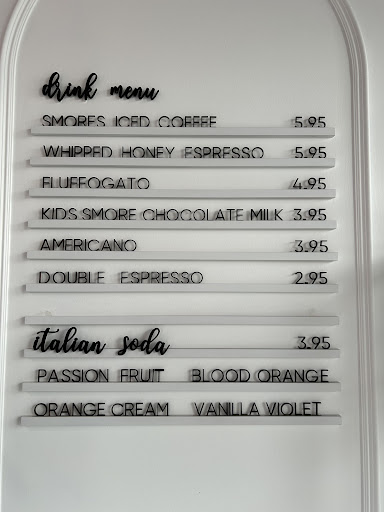 drink menu
SMORES ICED COFFEE 5.95
WHIPPED HONEY ESPRESSO 5.95
FLUFFOGATO 4.95
KIDS SMORE CHOCOLATE MILK 3.95
AMERICANO 3.95
DOUBLE ESPRESSO 2.95
italian soda 3.95
PASSION FRUIT BLOOD ORANGE
ORANGE CREAM VANILLA VIOLET